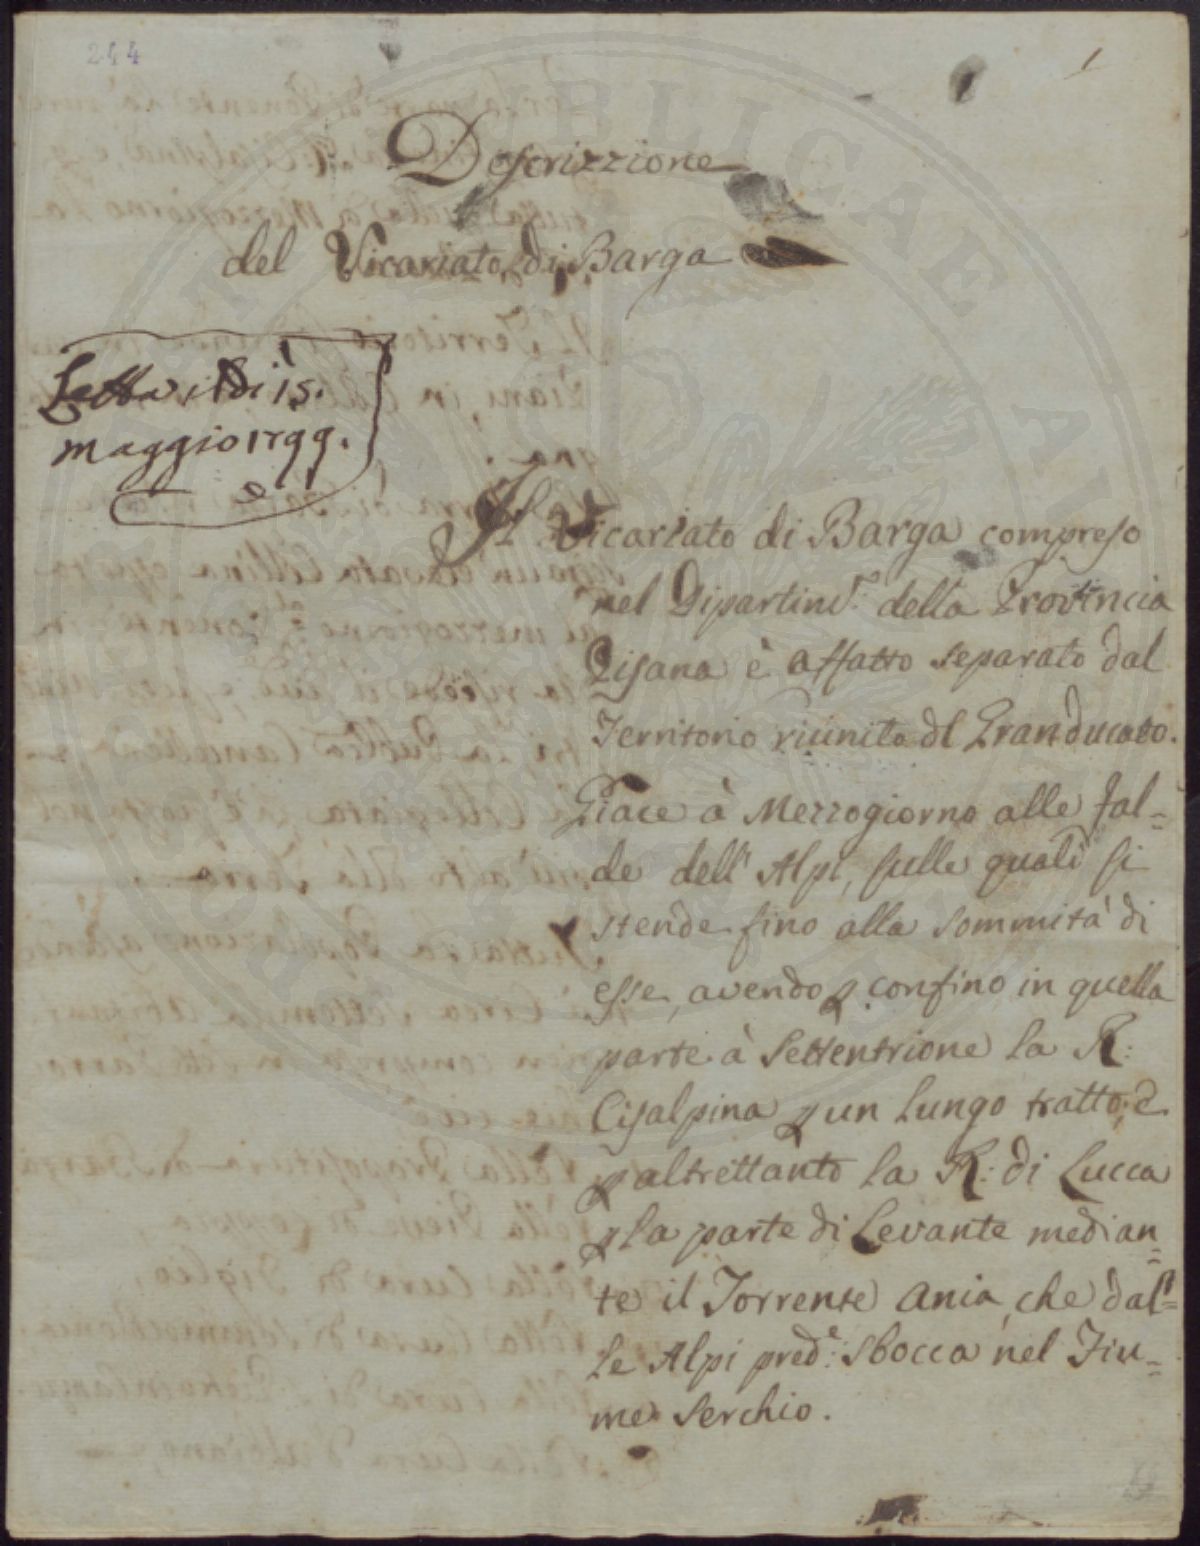 244
1
Descrizzione
del Vicariato di Barga
Letta il dì 15.
maggio 1799.
Il Vicariato di Barga compreso
nel Dipartim.º della Provincia
Pisana è affatto separato dal
Territorio riunito del Granducato.
Giace à Mezzogiorno alle fal=
de dell' Alpi, sulle quali si
stende fino alla sommità di
esse, avendo p confino in quella
parte à Settentrione la R:
Cisalpina p un lungo tratto, e
p altrettanto la R: di Lucca
p la parte di Levante median=
te il Torrente Ania, che dal=
le Alpi pred.e sbocca nel Fiu=
me Serchio.